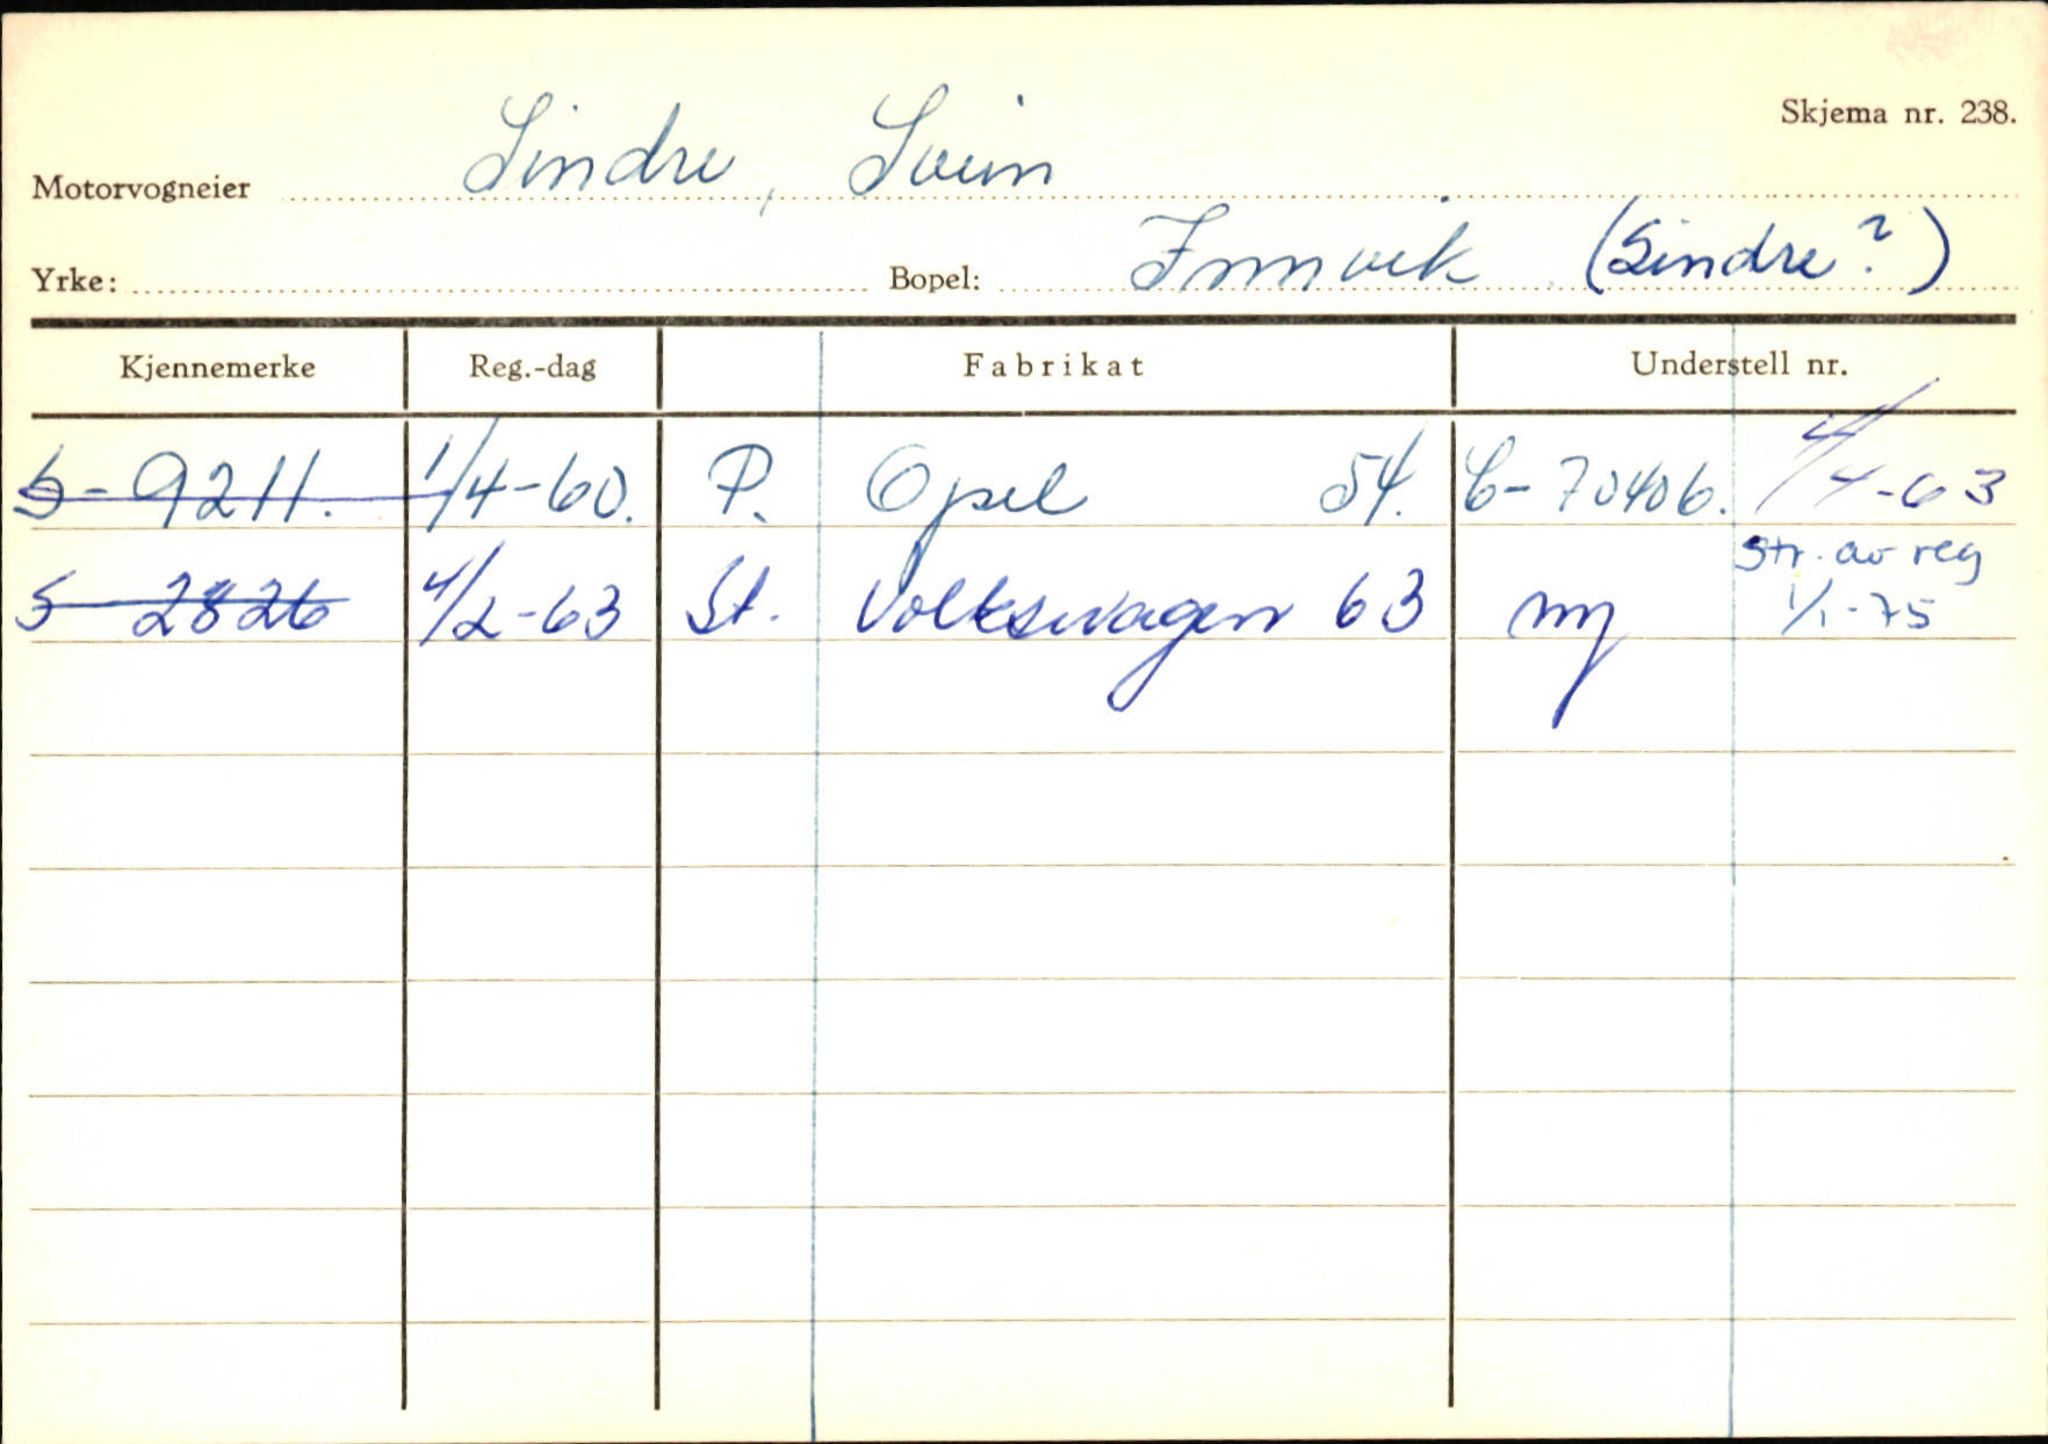 Skjema nr. 238.
Motorvogneier Sindre, Svein
Yrke: Bopel: Innvik (Sindre?)
Kjennemerke Reg.-dag Fabrikat Understell nr.
S-9211. 1/4-60. P. Opel 54. C-70406. 4/4-63
str. av reg
S 2826 4/2-63 St. Volkswagen 63 ny 1/1-75